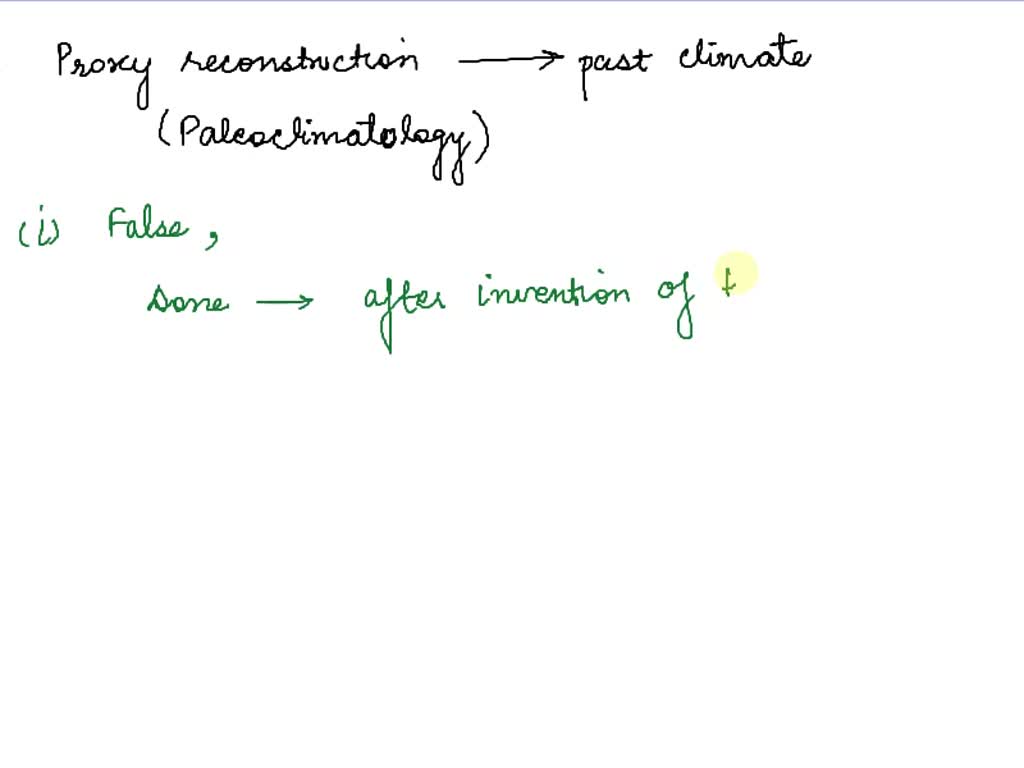 Proxy reconstruction → past climate
(Paleoclimatology)
(i) False,
Done → after invention of t